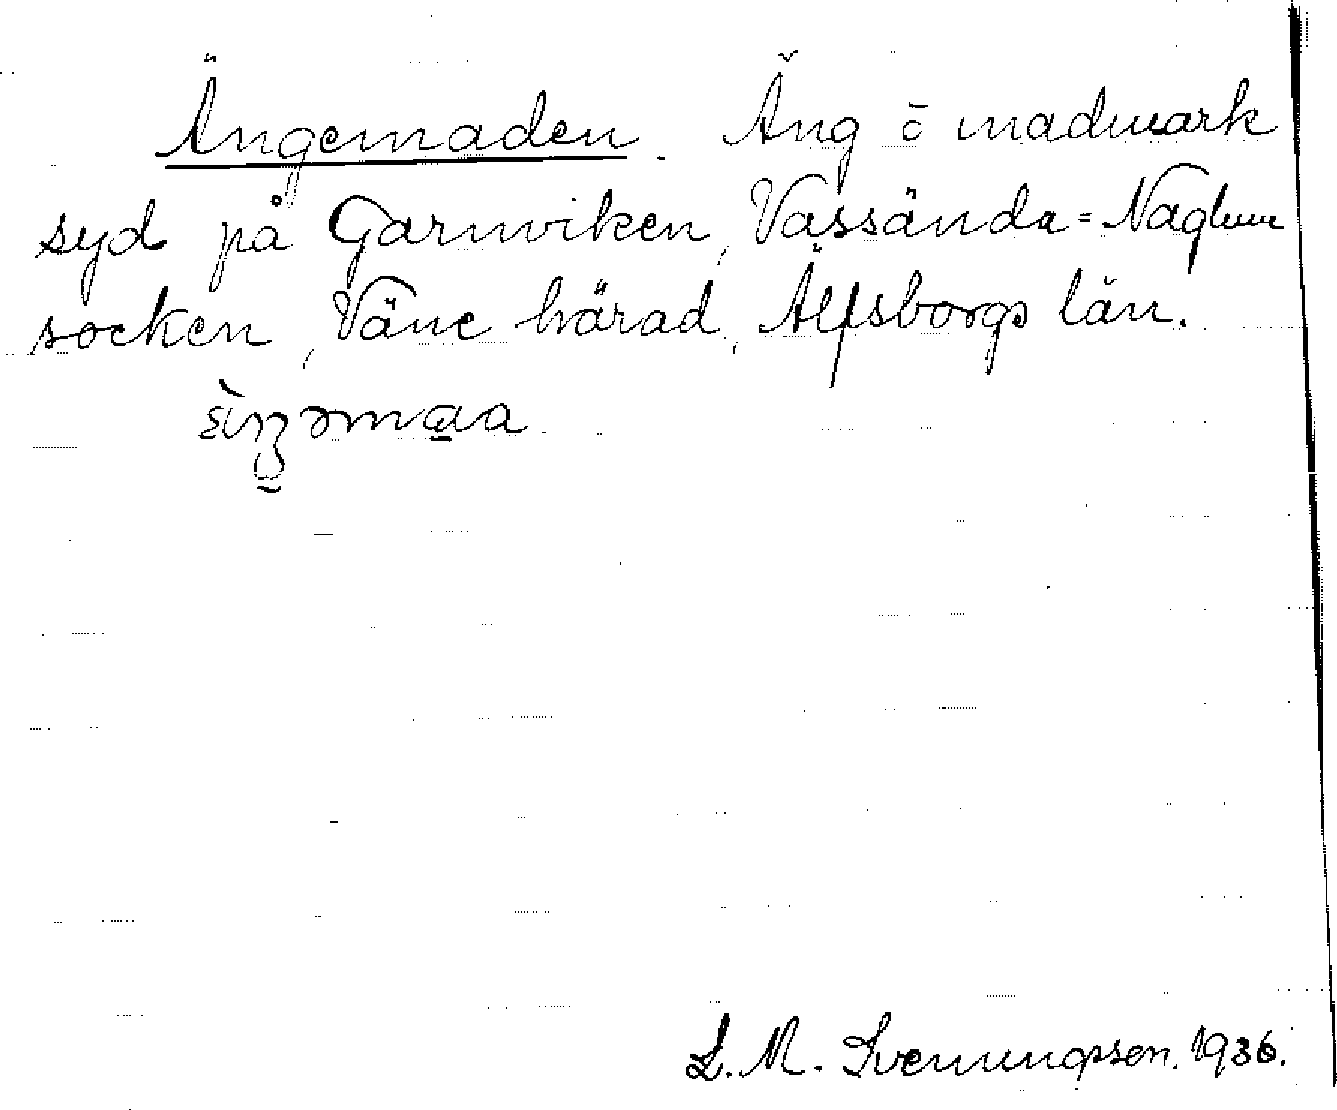 Ängemaden. Äng o madmark
syd på Garnviken, Vassända=Naglum
socken, Väne härad, Älfsborgs län.
L. M. Svenungsson. 1936.